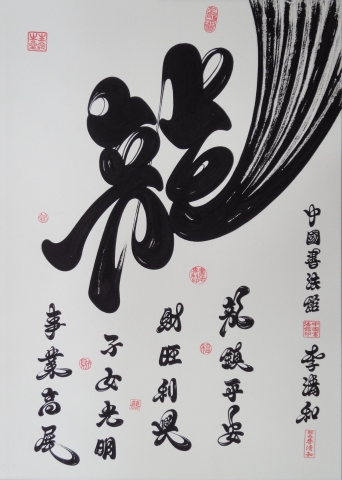 龍
龍鎮平安
財旺利興
子女光明
事業高展
中國書法館
李清和